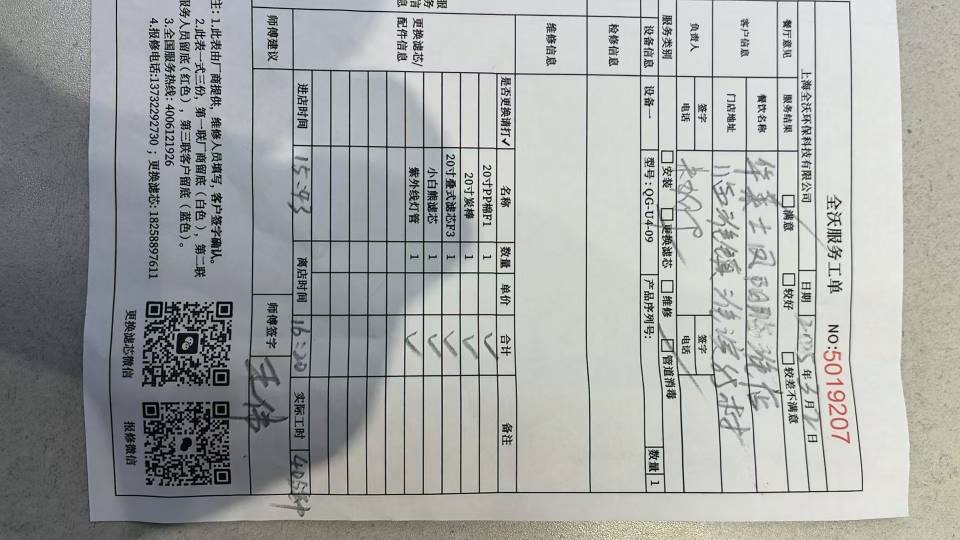 全沃服务工单
NO:5019207
上海全沃环保科技有限公司 日期 2025年3月 日
餐厅意见 服务结果 满意 较好 较差不满意
客户信息 餐饮名称 华莱士
门店地址
负责人 签字 签字
电话 电话
服务类别 安装 更换滤芯 维修 管道消毒
设备信息 设备一 型号:QG-U4-09 产品序列号: 数量 1
检修信息
维修信息
更换滤芯/配件信息
是否更换请打✓ 名称 数量 单价 合计 备注
20寸PP棉F1 1 ✓
20寸炭棒 1 ✓
20寸叠式滤芯F3 1 ✓
小白熊滤芯 1 ✓
紫外线灯管 1 ✓
进店时间 15:43 离店时间 16:20 实际工时 40分钟
师傅建议 师傅签字
注:1.此表由厂商提供,维修人员填写,客户签字确认。
2.此表一式三份,第一联厂商留底(白色),第二联
服务人员留底(红色),第三联客户留底(蓝色)。
3.全国服务热线:4006121926
4.报修电话:13732292730;更换滤芯:18258897611
更换滤芯微信 报修微信